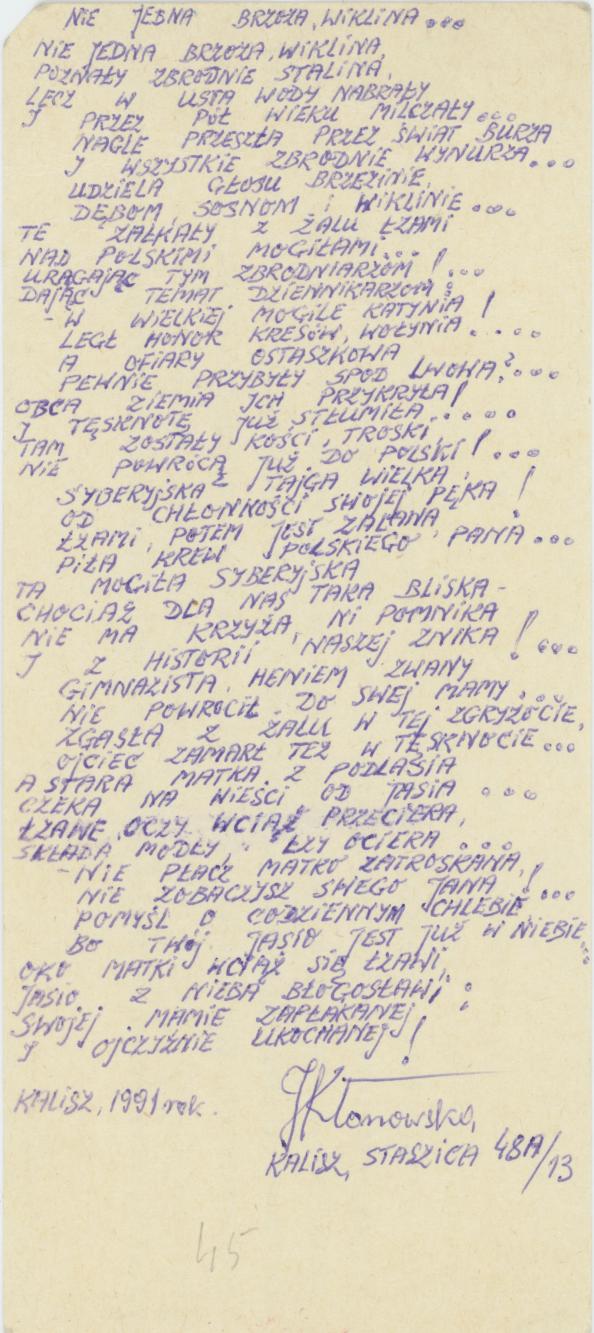 NIE JEDNA BRZOZA, WIKLINA...
NIE JEDNA BRZOZA, WIKLINA,
POZNAŁY ZBRODNIE STALINA,
LECZ W USTA WODY NABRAŁY
I PRZEZ PÓŁ WIEKU MILCZAŁY...
NAGLE PRZESZŁA PRZEZ ŚWIAT BURZA
I WSZYSTKIE ZBRODNIE WYNURZA...
UDZIELA GŁOSU BRZEZINIE,
DĘBOM, SOSNOM I WIKLINIE...
TE ZAŁKAŁY Z ŻALU ŁZAMI
NAD POLSKIMI MOGIŁAMI...
URĄGAJĄC TYM ZBRODNIARZOM!...
DAJĄC TEMAT DZIENNIKARZOM:
- W WIELKIEJ MOGILE KATYNIA!
LEGŁ HONOR KRESÓW, WOŁYNIA.....
A OFIARY OSTASZKOWA
PEWNIE PRZYBYŁY SPOD LWOWA?...
OBCA ZIEMIA ICH PRZYKRYŁA!
I TĘSKNOTĘ JUŻ STŁUMIŁA.....
TAM ZOSTAŁY KOŚCI, TROSKI
NIE POWRÓCĄ JUŻ DO POLSKI!...
SYBERYJSKA TAJGA WIELKA,
OD CHŁONNOŚCI SWOJEJ PĘKA!
ŁZAMI, POTEM JEST ZALANA
PIŁA KREW POLSKIEGO PANA...
TA MOGIŁA SYBERYJSKA
CHOCIAŻ DLA NAS TAKA BLISKA -
NIE MA KRZYŻA, NI POMNIKA
I Z HISTORII NASZEJ ZNIKA!...
GIMNAZISTA, HENIEM ZWANY
NIE POWRÓCIŁ DO SWEJ MAMY...
ZGASŁA Z ŻALU W TEJ ZGRYZOCIE,
OJCIEC ZAMARŁ TEŻ W TĘSKNOCIE...
A STARA MATKA Z PODLASIA
CZEKA NA WIEŚCI OD JASIA...
ŁZAWE OCZY WCIĄŻ PRZECIERA,
SKŁADA MODŁY, ŁZY OCIERA....
- NIE PŁACZ MATKO ZATROSKANA,
NIE ZOBACZYSZ SWEGO JANA!...
POMYŚL O CODZIENNYM CHLEBIE,
BO TWÓJ JASIO JEST JUŻ W NIEBIE...
OKO MATKI WCIĄŻ SIĘ ŁZAWI,
JASIO Z NIEBA BŁOGOSŁAWI:
SWOJEJ MAMIE ZAPŁAKANEJ
I OJCZYŹNIE UKOCHANEJ!
KALISZ, 1991 rok.
JKłonowska,
KALISZ, STASZICA 48A/13
45